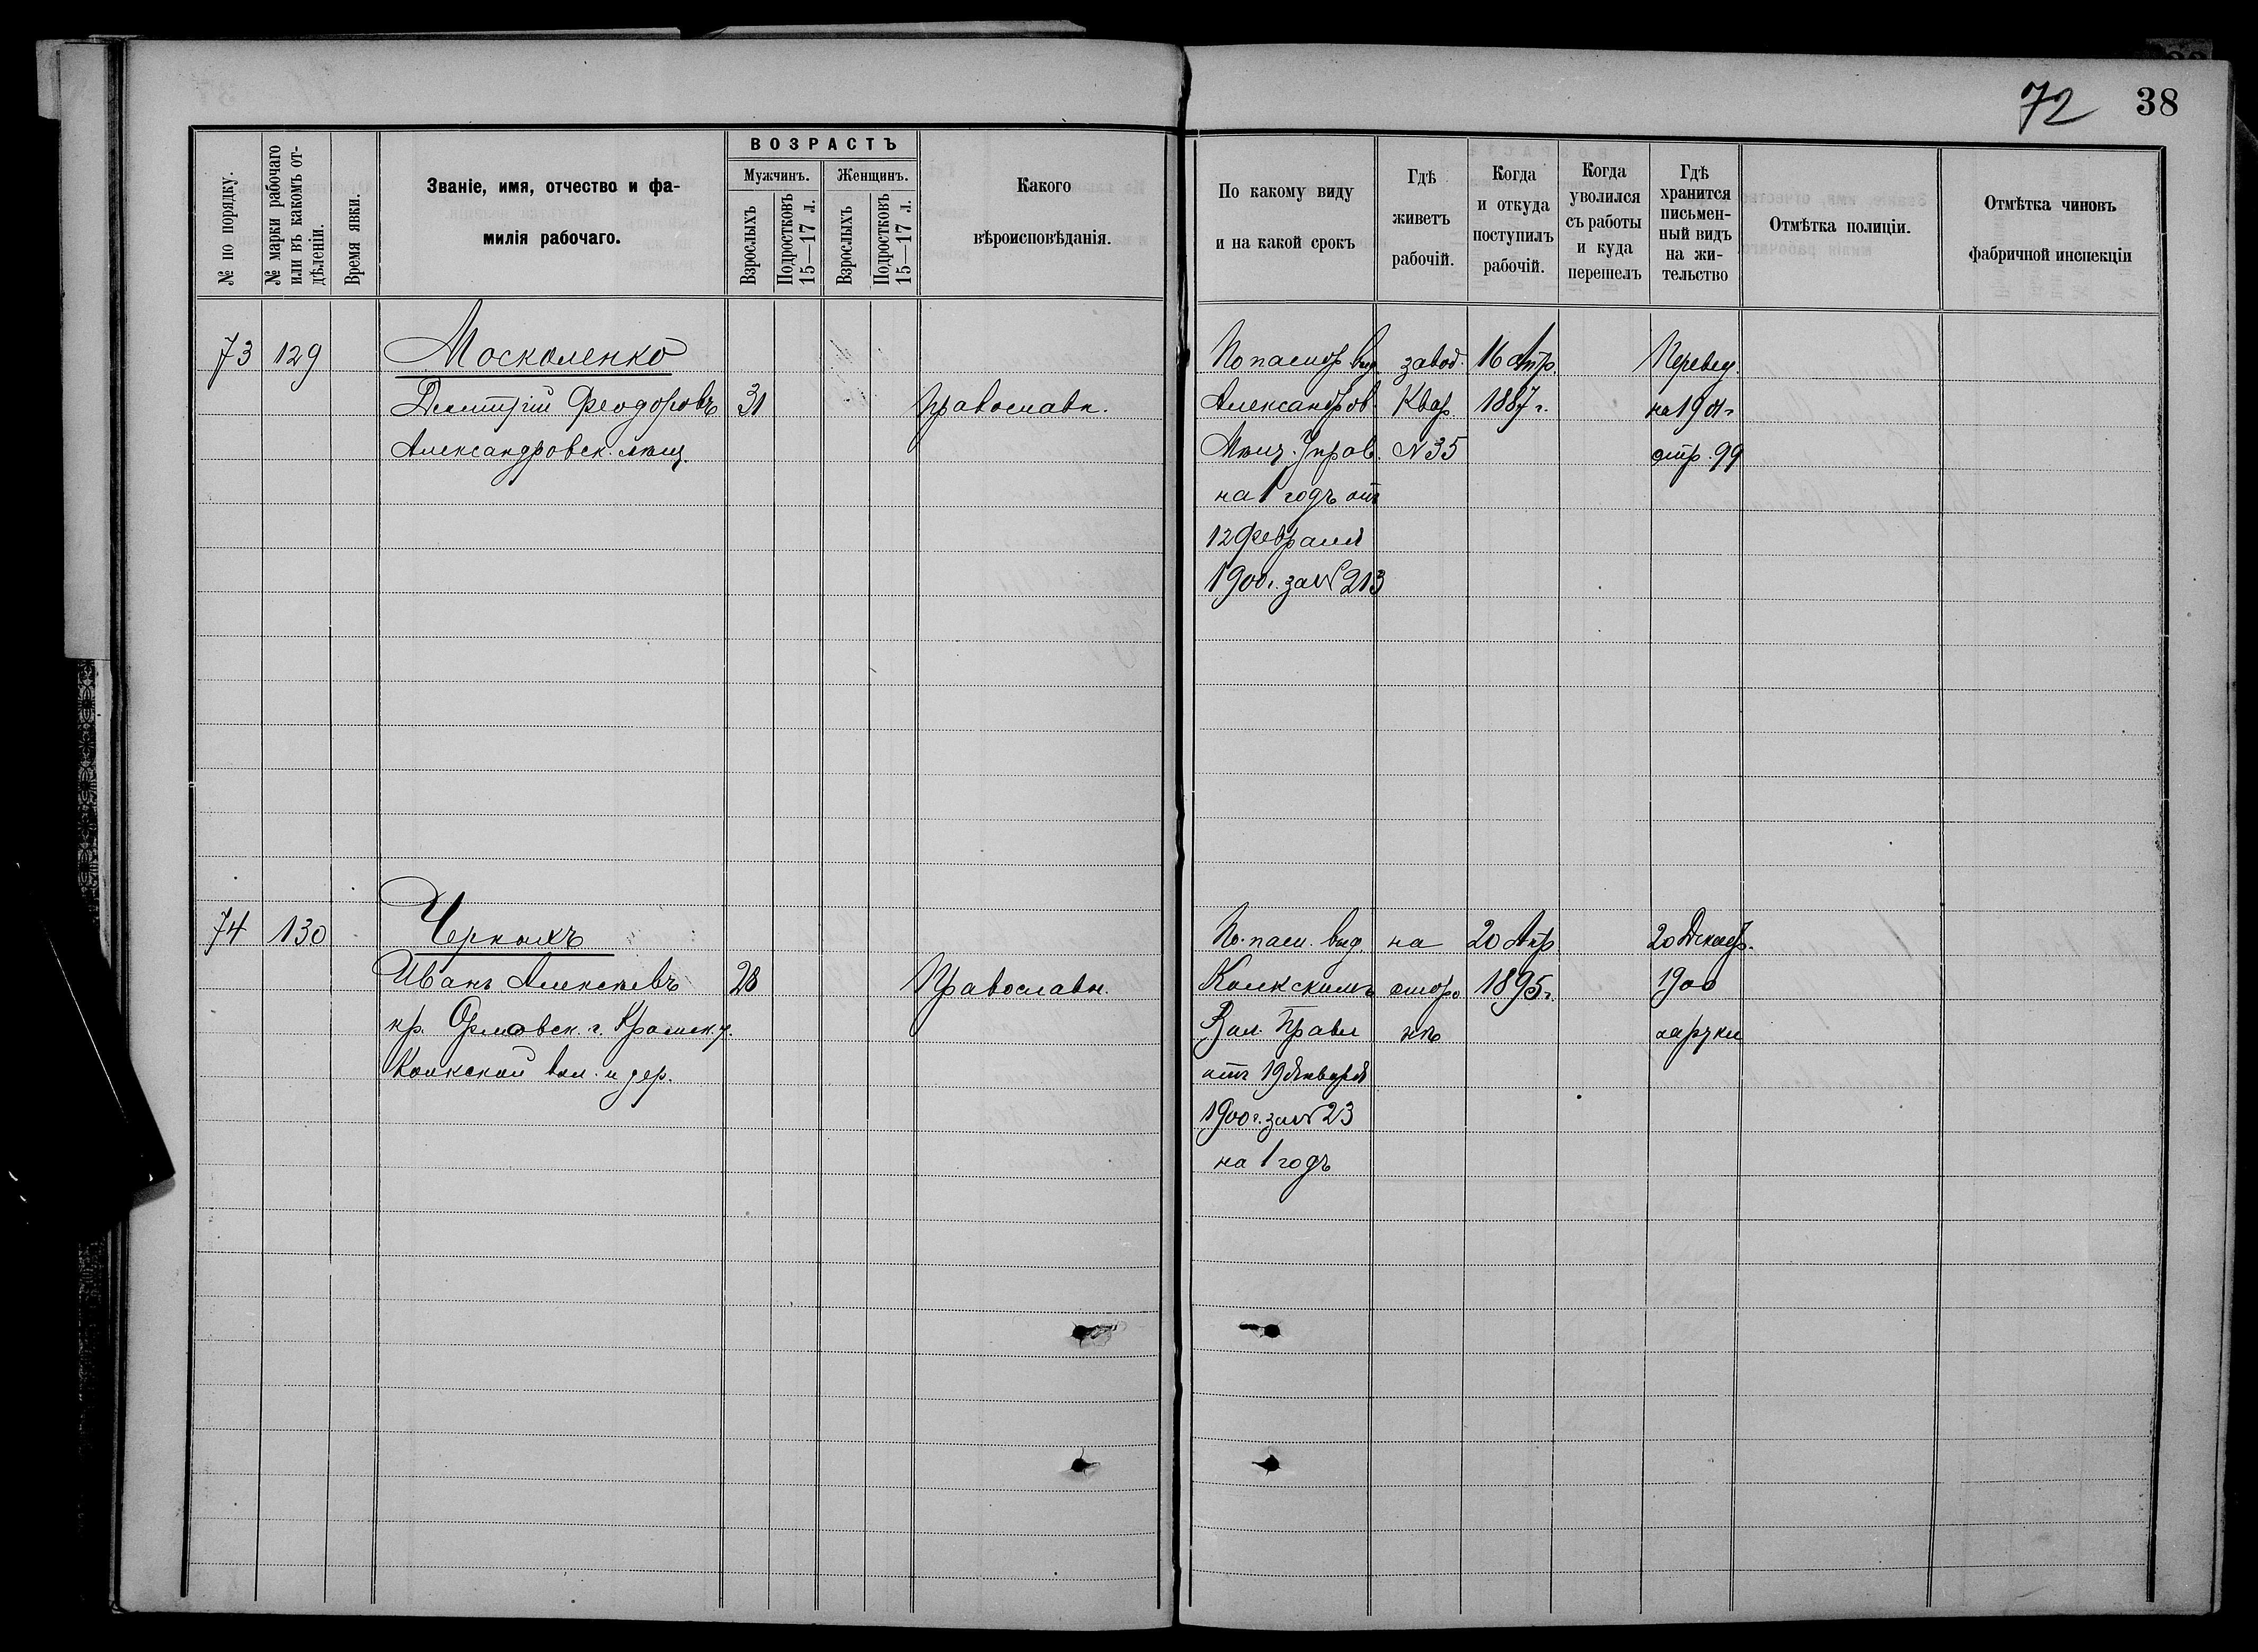 72 38
№ по порядку.
№ марки рабочаго
или въ какомъ от-
дѣленіи.
Время явки.
Званіе, имя, отчество и фа-
милія рабочаго.
ВОЗРАСТЪ
Мужчинъ.
Женщинъ.
Взрослыхъ
Подростковъ
15—17 л.
Взрослыхъ
Подростковъ
15—17 л.
Какого
вѣроисповѣданія.
По какому виду
и на какой срокъ
Гдѣ
живетъ
рабочій.
Когда
и откуда
поступилъ
рабочій.
Когда
уволился
съ работы
и куда
перешелъ
Гдѣ
хранится
письмен-
ный видъ
на жи-
тельство
Отмѣтка полиціи.
Отмѣтка чиновъ
фабричной инспекціи
73 129
Москаленко
Дмитрій Феодоровъ
Александровск. мѣщ.
31
Православн.
По паспор выд.
Александров.
Мѣщ. Управ.
на 1 годъ отъ
12 Февраля
1900 г. за № 213
завод.
Квар.
№ 35
16 Апр.
1887 г.
Перевед.
на 1901 г
стр. 99
74 130
Черныхъ
Иванъ Алексѣевъ
кр. Орловск. г. Кромск. у.
Колкской вол. и дер.
28
Православн.
По пасп. выд.
Колкскимъ
Вол. Правл
отъ 19 Января
1900 г. за № 23
на 1 годъ
на
сторо
нѣ
20 Апр
1895 г.
20 Декабр.
1900
на руки